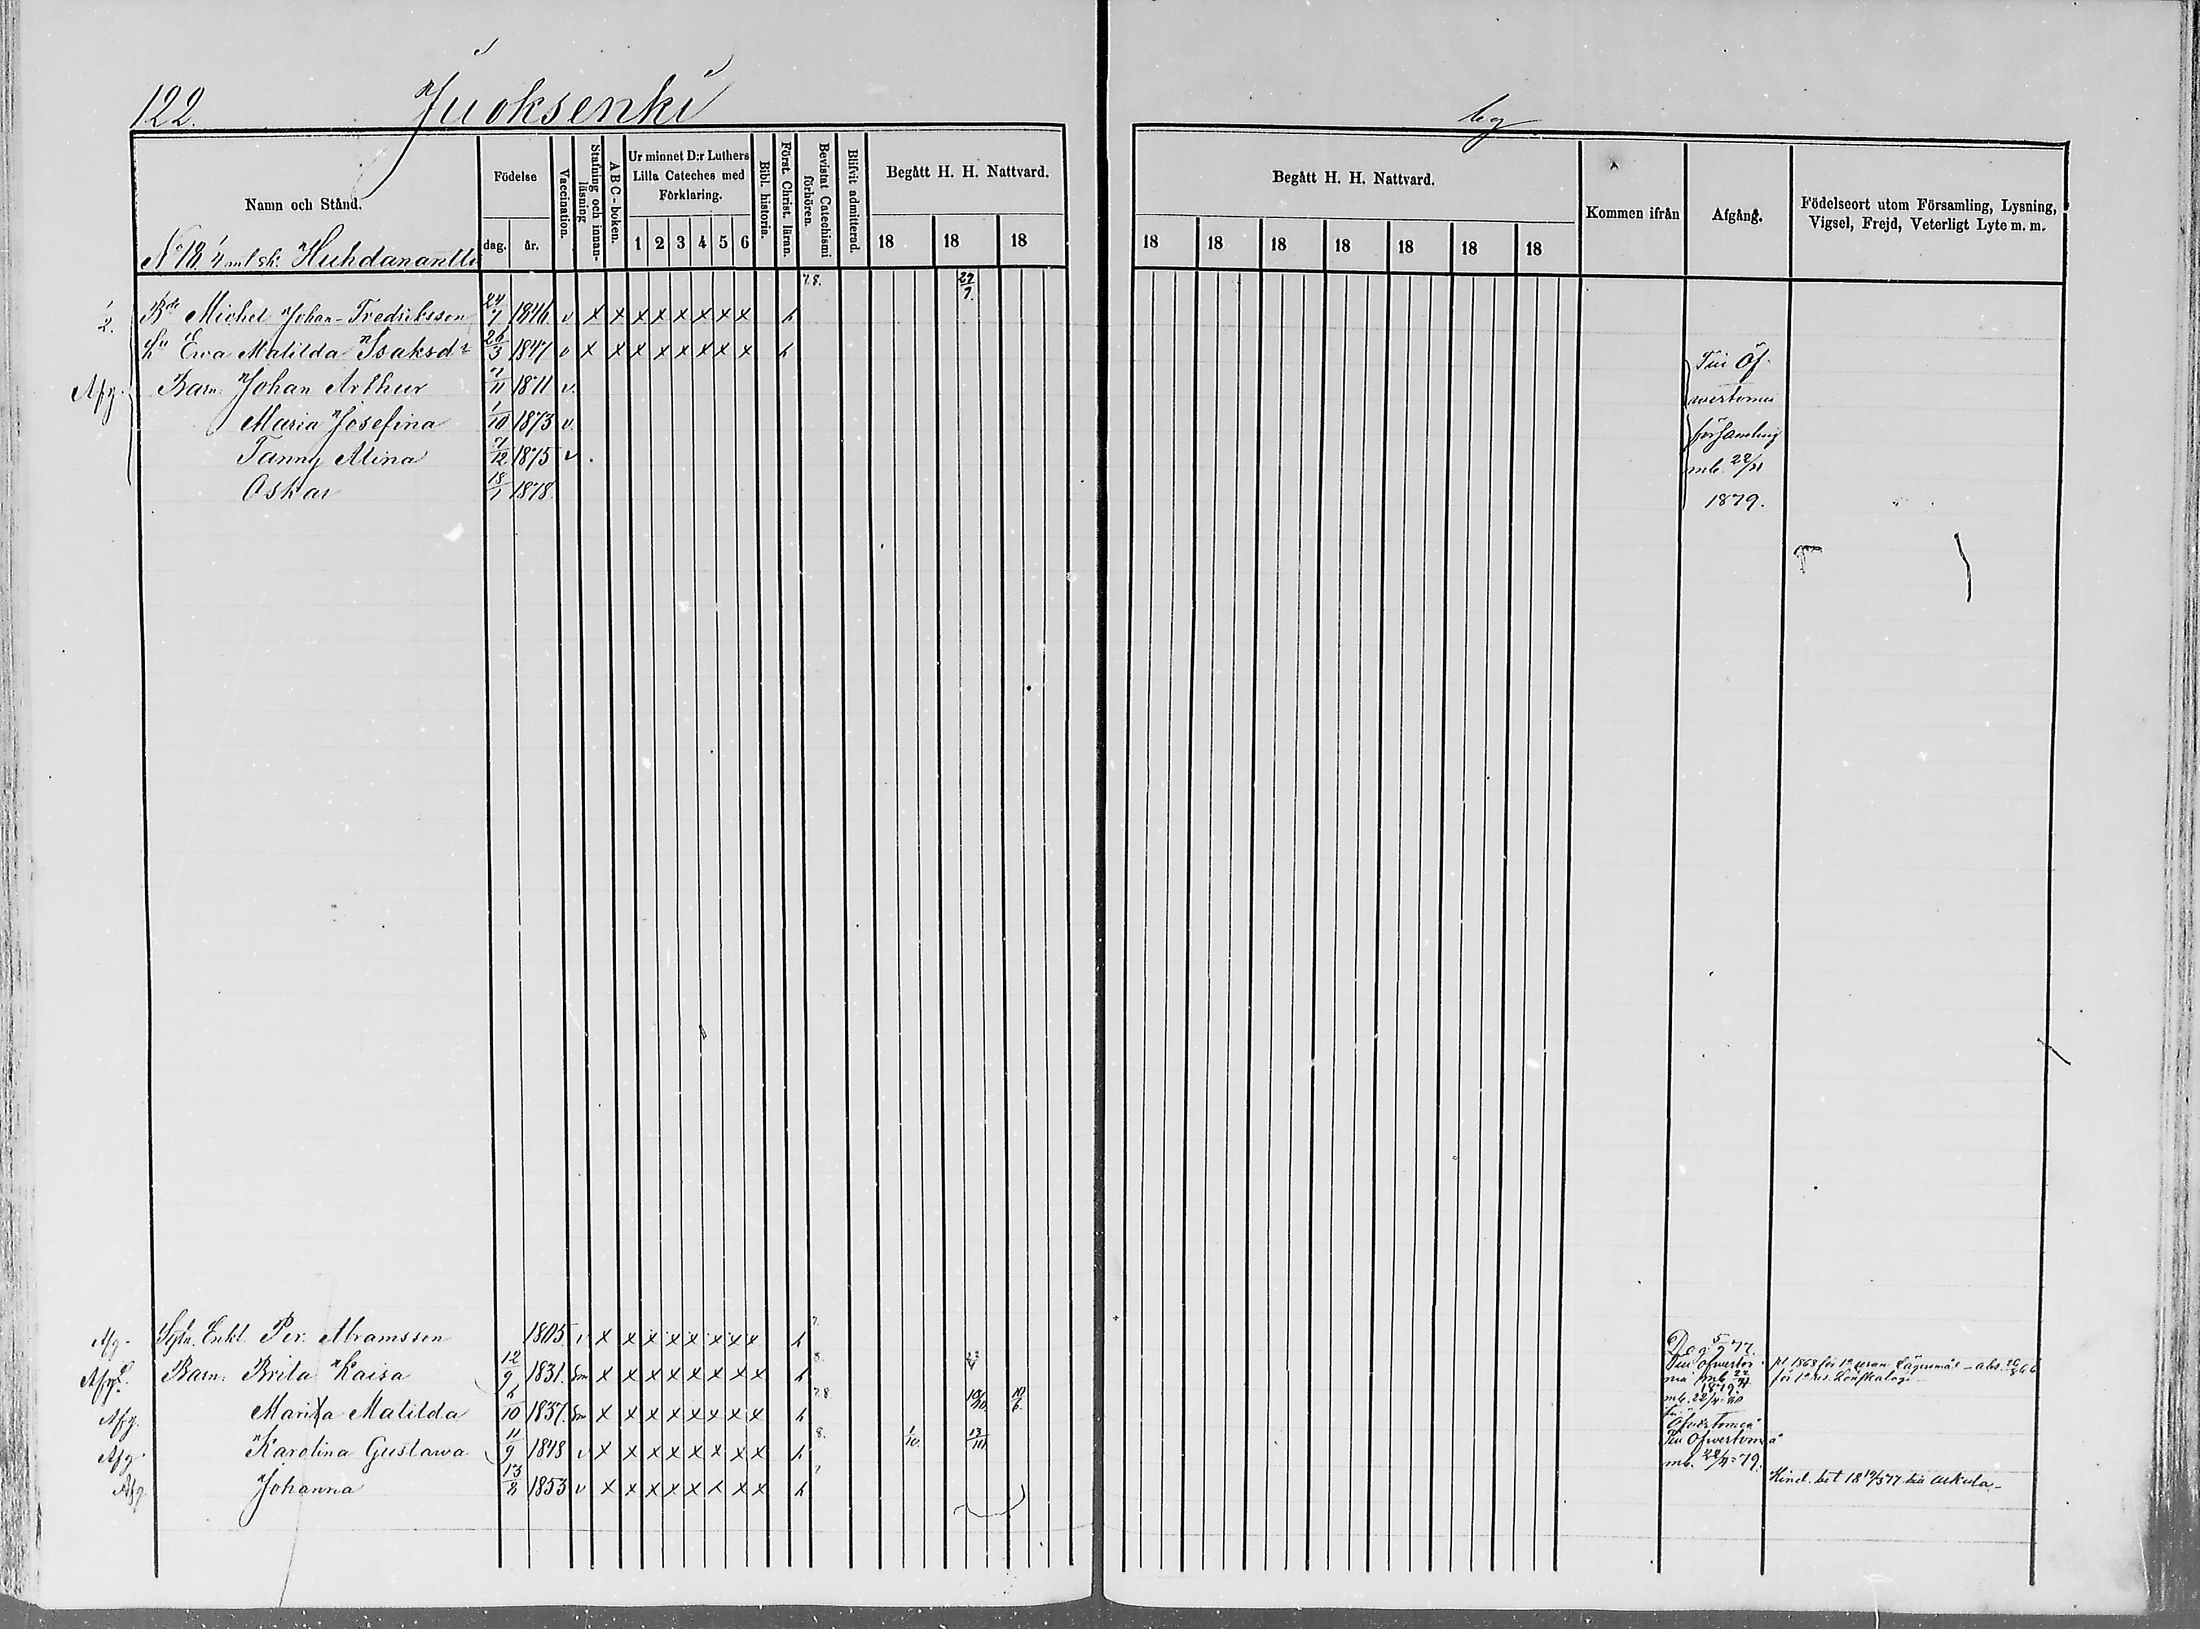 122. Juoksenki
by
Namn och Stånd.
Födelse
dag. år.
Vaccination.
Stafning och innan-läsning
A B C - boken.
Ur minnet D:r Luthers Lilla Cateches med Förklaring.
1 2 3 4 5 6
Bibl. historia.
Först. Christ. läran.
Bevistat Catechismi förhören.
Blifvit admitterad.
Begått H. H. Nattvard.
18 18 18
Begått H. H. Nattvard.
18 18 18 18 18 18 18
Kommen ifrån
Afgång.
Födelseort utom Församling, Lysning, Vigsel, Frejd, Veterligt Lyte m. m.
No 18. 1/4 mtl sk. Huhdanantti
78. 27/7.
1/2. Bde Michel Johan-Fredriksson 24/7 1846 v x x x x x x x x h
Hu Ewa Matilda Isaksdr 26/3 1847 v x x x x x x x x h
Afg. Barn. Johan Arthur 7/11 1871 v.
Maria Josefina 1/10 1873 v.
Fanny Alina 7/12 1875 v.
Oskar 18/1 1878
Till Öf-
vertorneå
församling
mb. 22/11
1879.
Afg. Sytn. Enkl. Per. Abramsson 1805 v x x x x x x x x h 7. Dog 5/9 77.
Afg. Barn. Brita Kaisa 12/9 1831. x x x x x x x x h 8. Till Öfvertor-
neå mb 22/11
1879.
pl 1868 för 1a resan Lägersmål - abs.
för 1a res. Lönskaläge
Afg. Maria Matilda 1/10 1837. x x x x x x x x h 78 18/10 10/6. mb. 22/11 80
till
Öfvertorneå
Afg. Karolina Gustawa 11/9 1848 v x x x x x x x x h 8. 1/10. 13/10 Till Öfvertorneå
mb. 22/11 79.
Afg. Johanna 13/8 1853 v x x x x x x x x h 7 Hind. bet 18 19/5 77 till